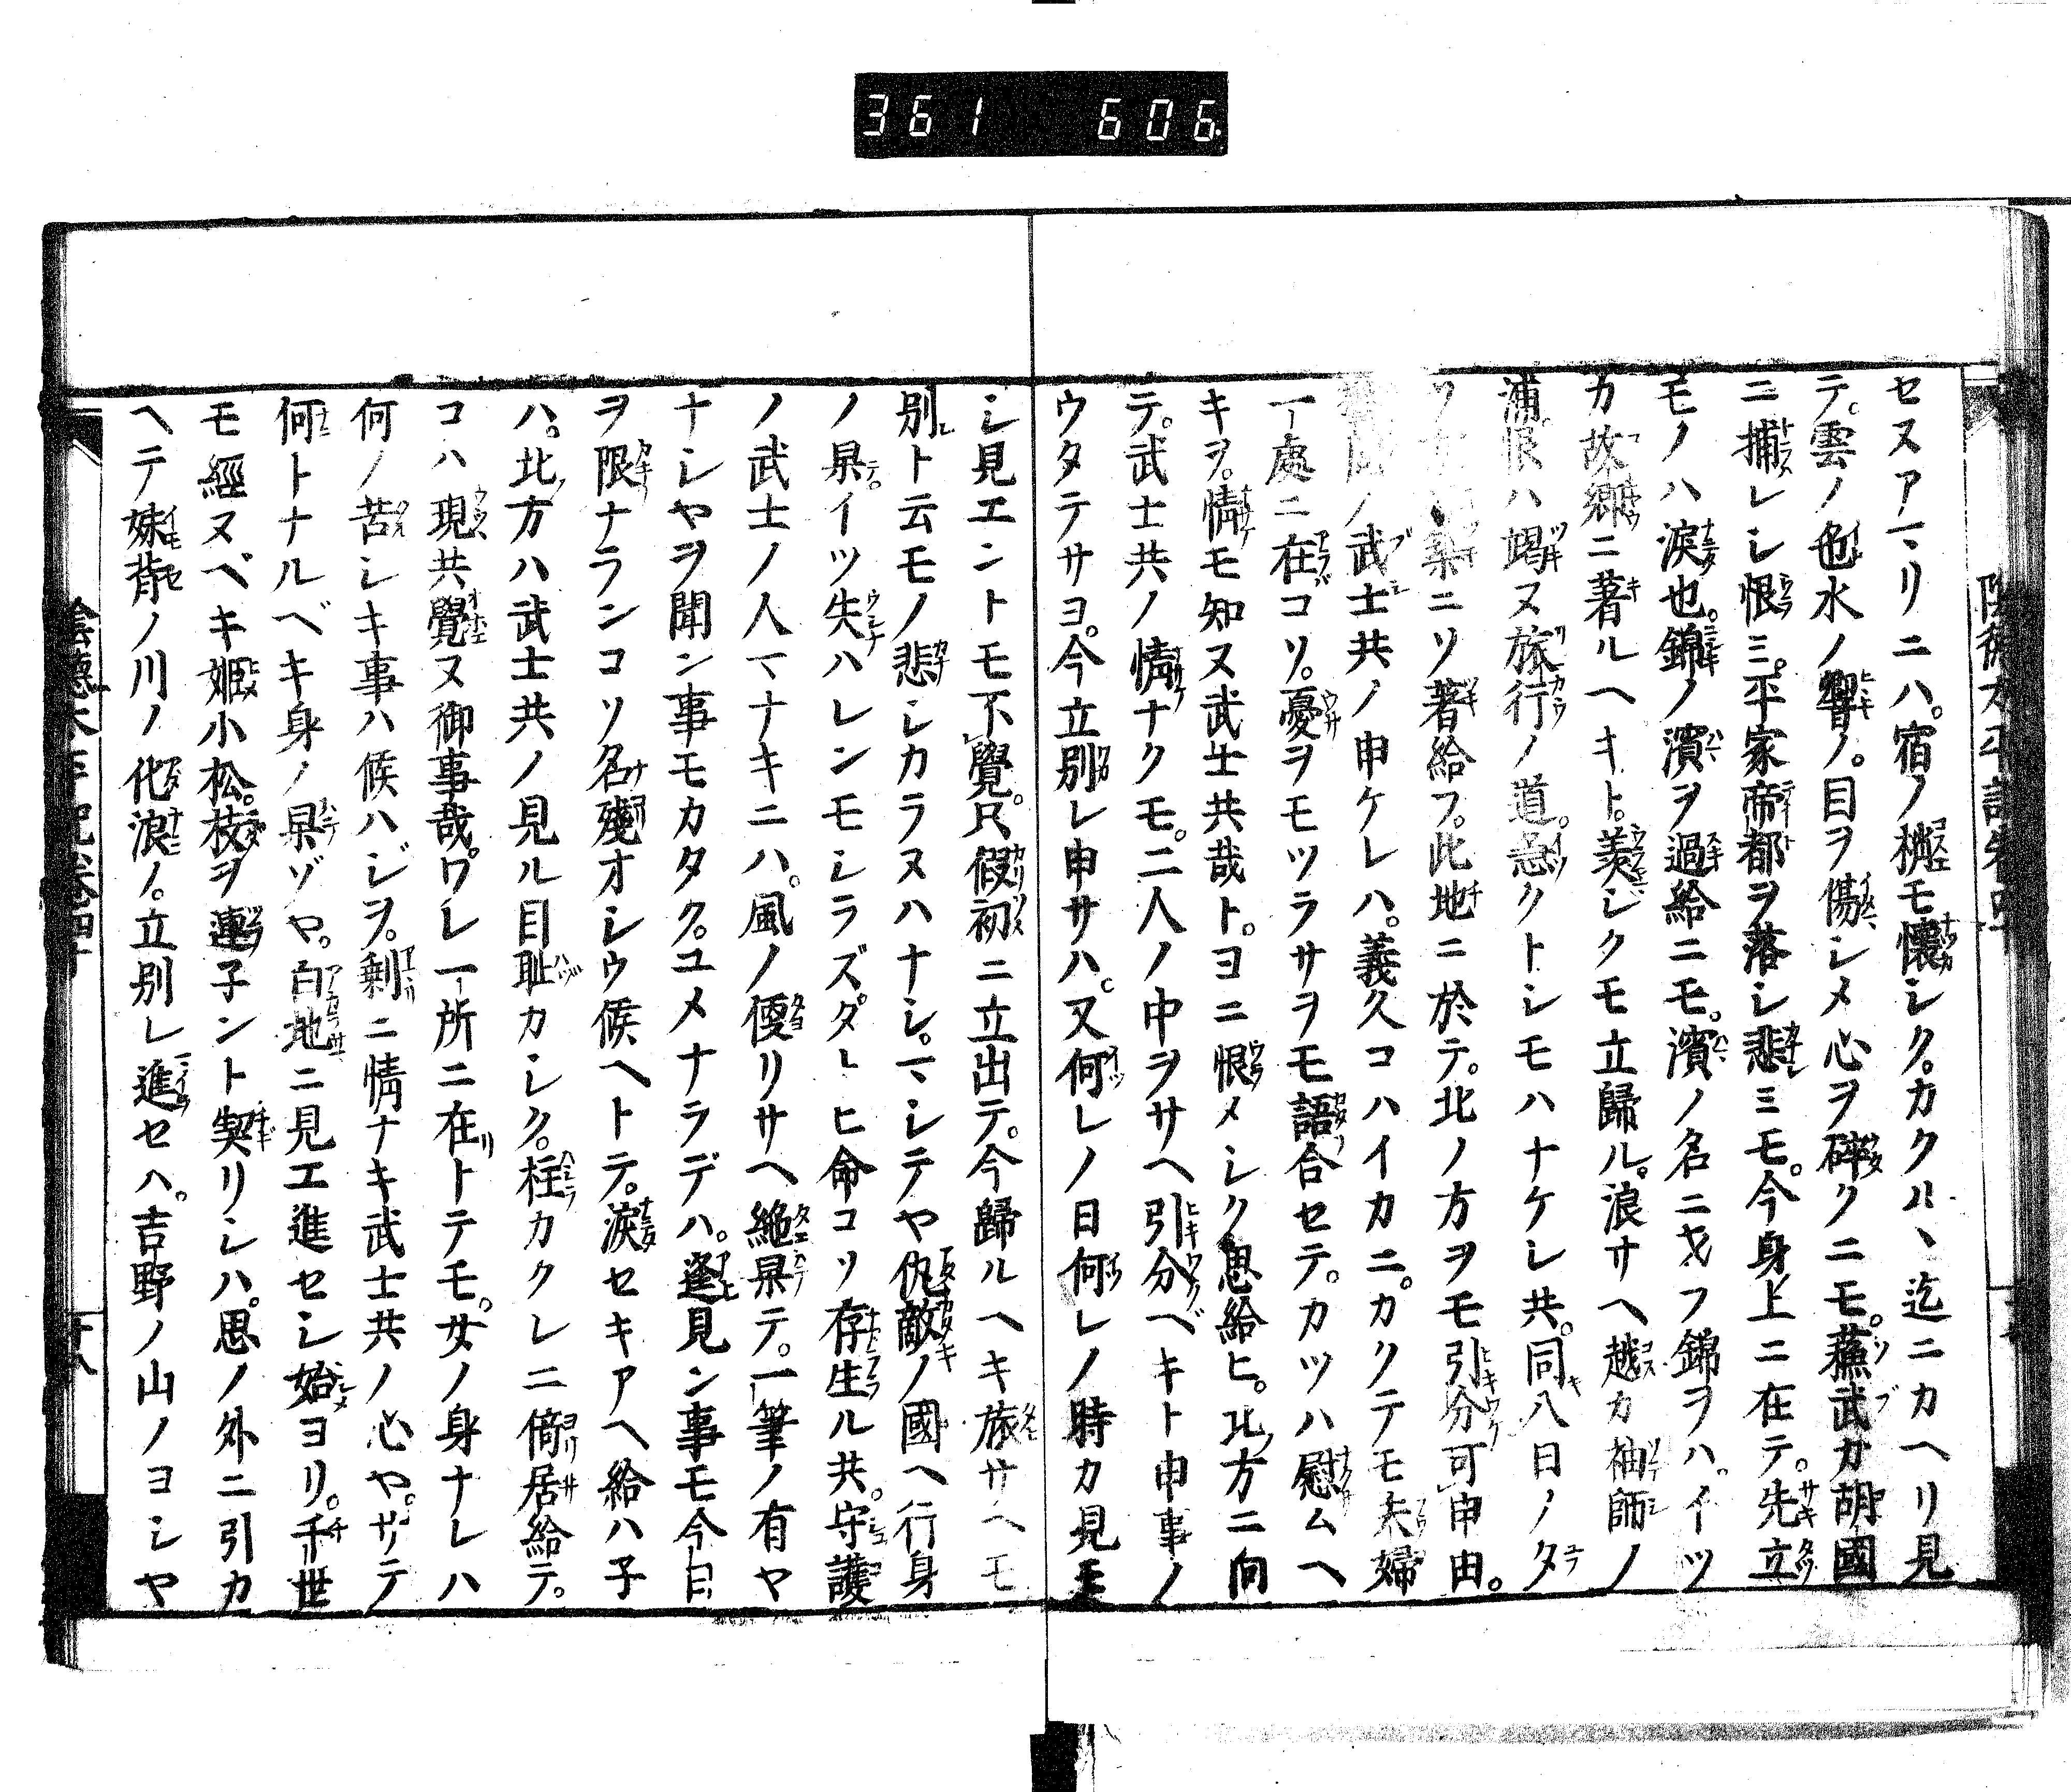 361 606
セヌアマリニハ。宿ノ櫁モ懐シク。カクハヽ迄ニカヘリ見
テ。雲ノ色水ノ響ノ。目ヲ傷シメ心ヲ碎クニモ。蘓武カ胡國
ニ捕レシ恨ミ。平家帝都ヲ落シ悲ミモ。今身上ニ在テ。先立
モノハ涙也。錦ノ濱ヲ過給ニモ。濱ノ名ニヲフ錦ヲハ。イツ
カ故郷ニ著ルヘキト。羨シクモ立歸ル。浪サヘ越カ袖師ノ
浦。恨ハ竭ヌ旅行ノ道。急クトシモハナケレ共。同八日ノ夕
ニソ著給フ。此地ニ於テ。北ノ方ヲモ引分可申由。
ノ武士共ノ申ケレハ。義久コハイカニ。カクテモ夫婦
一處ニ在コソ。憂ヲモツラサヲモ語合セテ。カツハ慰ムヘ
キヲ。情モ知ヌ武士共哉ト。ヨニ恨メシク思給ヒ。北方ニ向
テ。武士共ノ情ナクモ。二人ノ中ヲサヘ引分ベキト申事ノ
ウタテサヨ。今立別レ申サハ。又何レノ日何レノ時カ見
シ見エントモ不覺。只假初ニ立出テ。今歸ルヘキ旅サヘモ
別ト云モノ悲シカラヌハナシ。マシテヤ仇敵ノ國ヘ行身
ノ果テ。イツ失ハレンモシラズ。タトヒ命コソ存生ル共。守護
ノ武士ノ人マナキニハ。風ノ便リサヘ絶果テ。一筆ノ有ヤ
ナシヤヲ聞ン事モカタク。ユメナラデハ。逢見ン事モ今日
ヲ限ナランコソ名殘オシウ候ヘトテ。涙セキアヘ給ハ子
ハ。北方ハ武士共ノ見ル目耻カシク。柱カクレニ倚居給テ。
コハ現共覺ヌ御事哉。ワレ一所ニ在トテモ。女ノ身ナレハ
何ノ苦シキ事ハ候ハジヲ。剩ニ情ナキ武士共ノ心ヤ。サテ
何トナルベキ身ノ果ゾヤ。白地ニ見エ進セシ始ヨリ。千世
モ經ヌベキ姫小松。枝ヲ連子ント契リシハ。思ノ外ニ引カ
ヘテ妹背ノ川ノ化浪ノ。立別レ進セハ。吉野ノ山ノヨシヤ